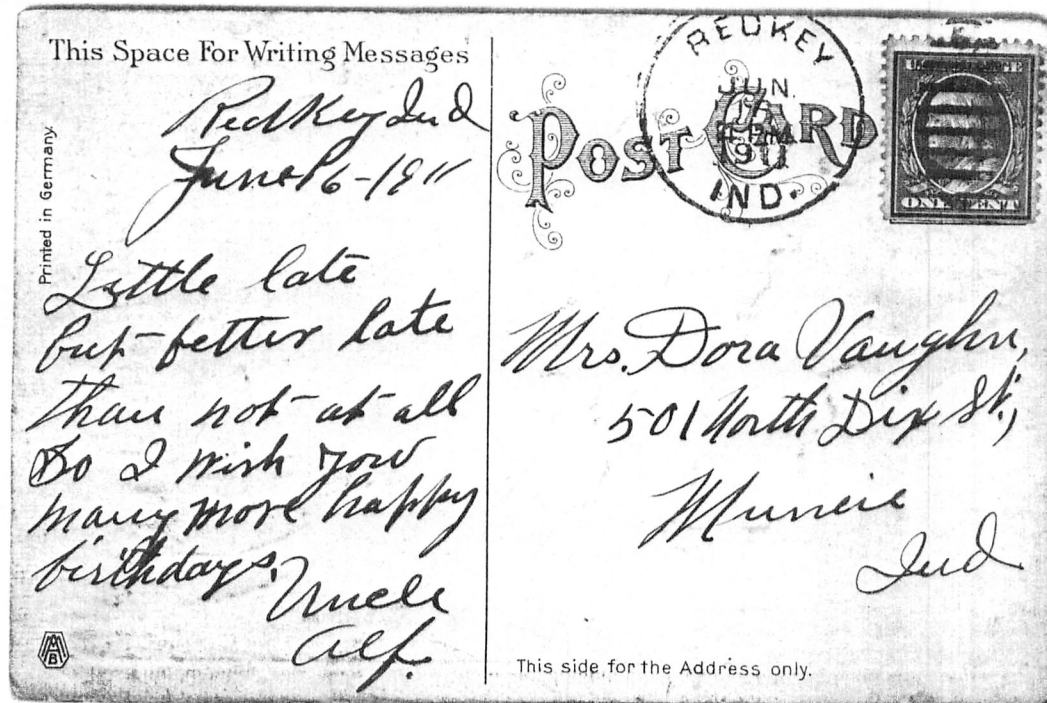 This Space For Writing Messages
Printed in Germany.
RedKey Ind
June 16-1911
Little late
but better late
than not at all
So I wish you
many more happy
birthdays.
Uncle
Alf.
POST CARD
REDKEY
JUN.
1911
IND.
ONE CENT
Mrs. Dora Vaughn,
501 North Dix St.,
Muncie
Ind
This side for the Address only.